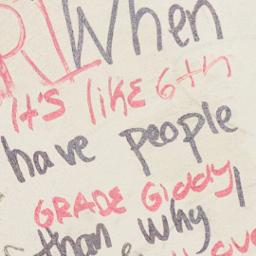 RI When
It's like 6th
have people
GRADE Giddy
than why I